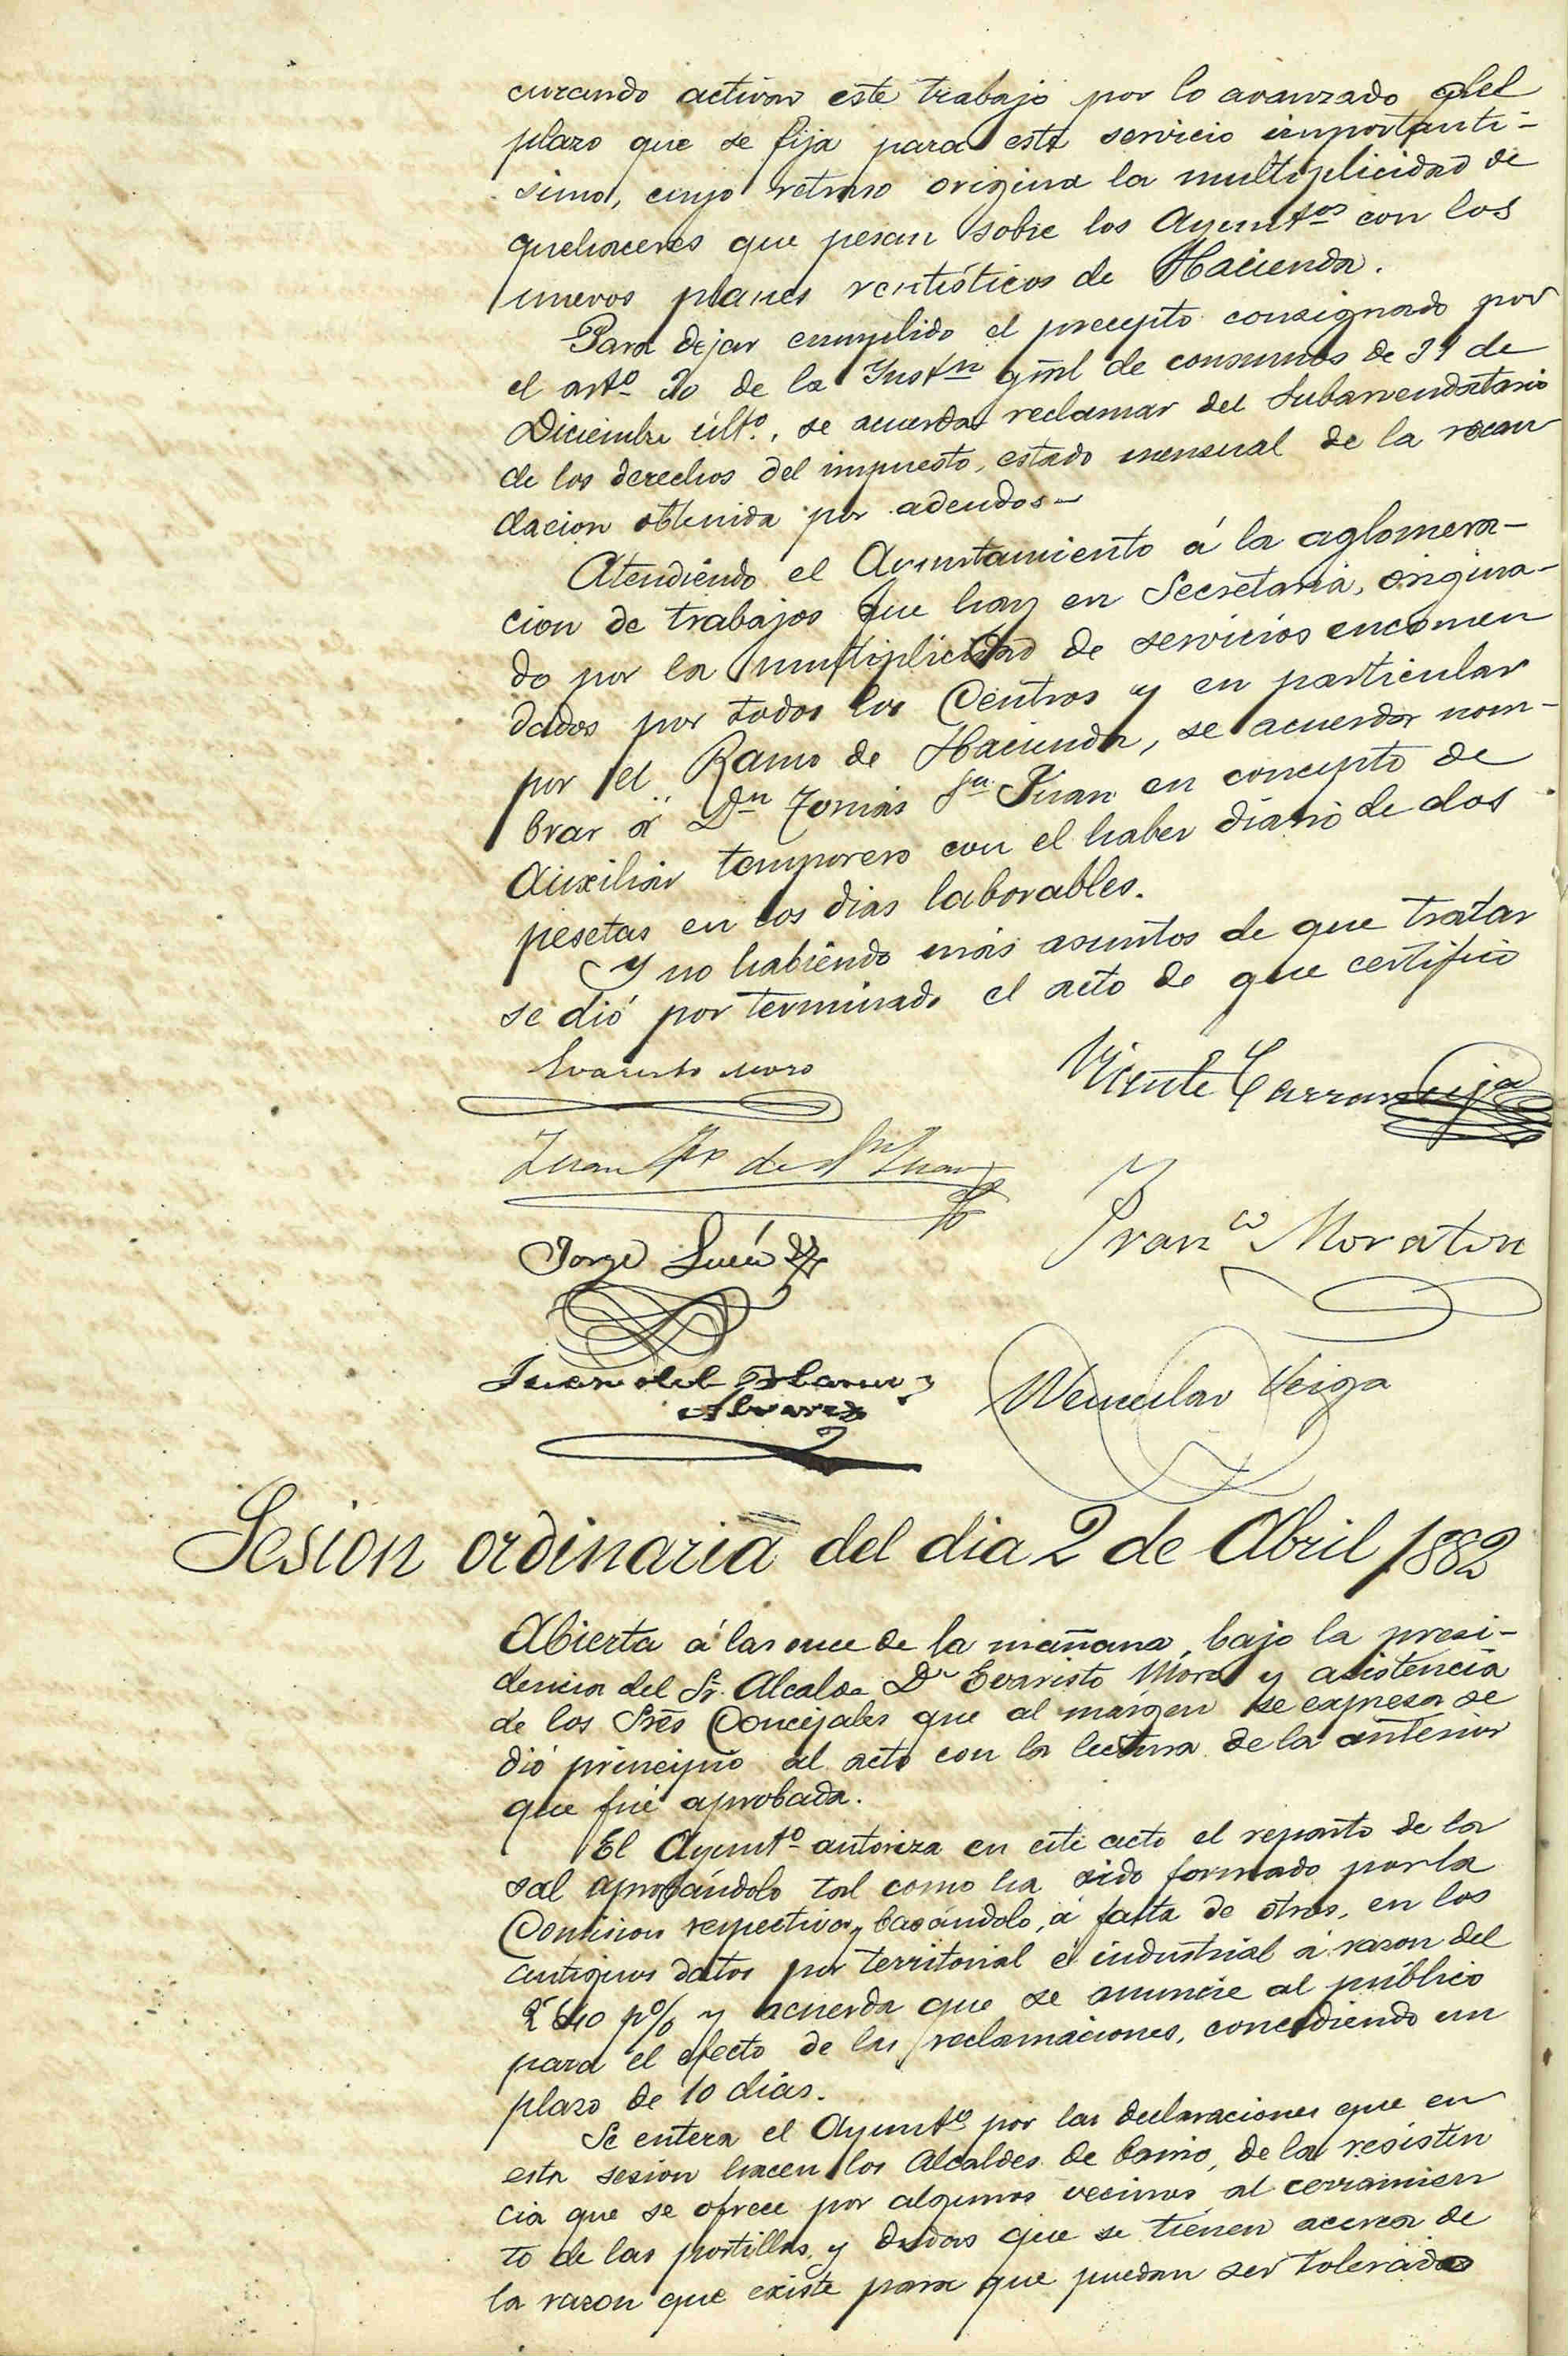 curando activar este trabajo por lo avanzado del
plazo que se fija para este servicio importanti-
simo, cuyo retraso origina la multiplicidad de
quehaceres que pesan sobre los Ayuntos con los
nuevos planes rentísticos de Hacienda.
Para dejar cumplido el precepto consignado por
el arto 20 de la Instn gral de consumos de 31 de
Diciembre últo., se acuerda reclamar del Subarrendatario
de los derechos del impuesto, estado mensual de la recau
dacion obtenida por adeudos-
Atendiendo el Ayuntamiento á la aglomera-
cion de trabajos que hay en Secretaria, origina-
do por la multiplicidad de servicios encomen
dados por todos los Centros y en particular
por el Ramo de Hacienda, se acuerda nom-
brar á Dn Tomás Sn Juan en concepto de
Auxiliar temporero con el haber diario de dos
pesetas en los dias laborables.
Y no habiendo más asuntos de que tratar
se dió por terminado el acto de que certifico
Evaristo Moro
Vicente Carrasceja
Juan de Sn Juan
Franco Moraton
Jorge Lucía
Juan del Alamo
Alvarez
Wenceslao Veiga
Sesion ordinaria del dia 2 de Abril 1882
Abierta á las once de la mañana, bajo la presi-
dencia del Sr. Alcalde Dn Evaristo Moro y asistencia
de los Sres Concejales que al márgen se expresa se
dió principio al acto con la lectura de la anterior
que fué aprobada.
El Ayunto autoriza en este acto el reparto de la
sal aprobándolo tal como ha sido formado por la
Comision respectiva y basándolo, á falta de otros, en los
antiguos datos por territorial é industrial á razon del
2'640 p% y acuerda que se anuncie al público
para el efecto de las reclamaciones, concediendo un
plazo de 10 dias.
Se entera el Ayunto por las declaraciones que en
esta sesion hacen los Alcaldes de barrio, de la resisten
cia que se ofrece por algunos vecinos al cerramien
to de las portillas y dudas que se tienen acerca de
la razon que existe para que puedan ser tolerados